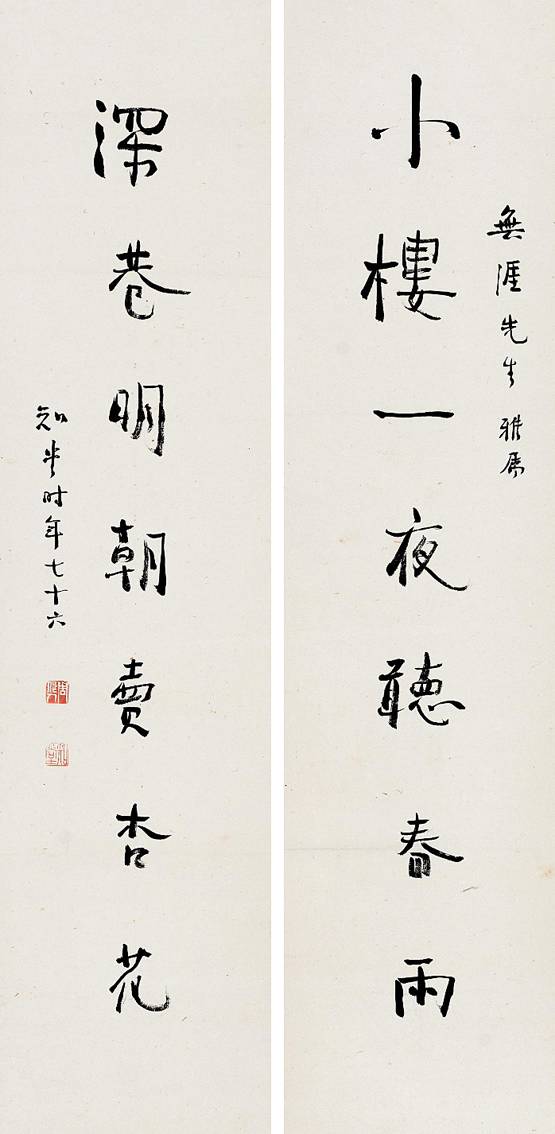 無涯先生雅属
小樓一夜聽春雨
深巷明朝賣杏花
知堂时年七十六